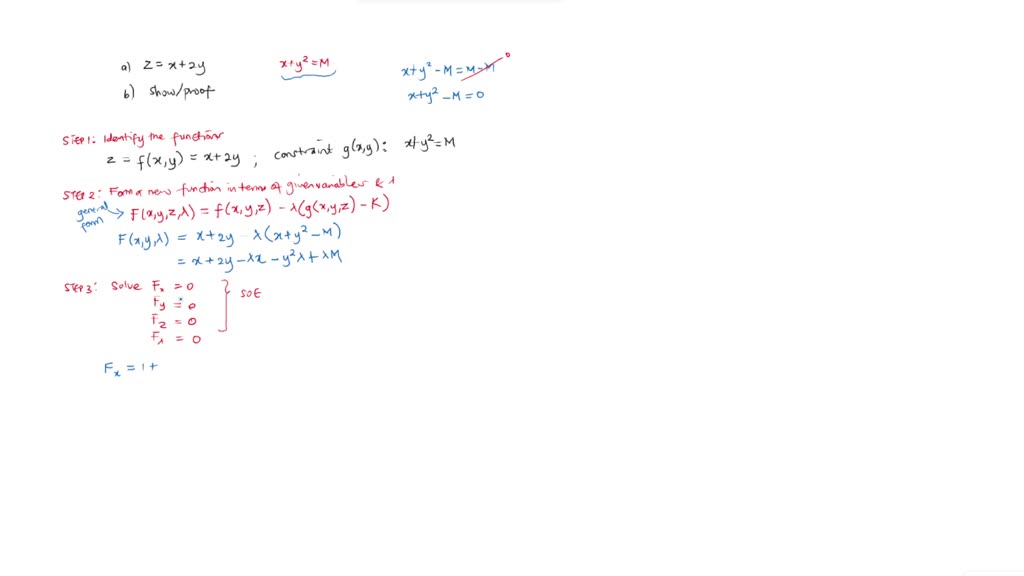 a) z = x+2y x+y² = M x+y² - M = M - M 0
b) show/proof x+y² - M = 0
STEP 1: Identify the functions
z = f(x,y) = x+2y ; constraint g(x,y): x+y² = M
STEP 2: Form a new function in terms of given variables & λ
general form F(x,y,z,λ) = f(x,y,z) - λ(g(x,y,z) - K)
F(x,y,λ) = x+2y - λ(x+y² - M)
= x+2y - λx - y²λ + λM
STEP 3: Solve Fx = 0
Fy = 0 SOE
Fz = 0
Fλ = 0
Fx = 1 +